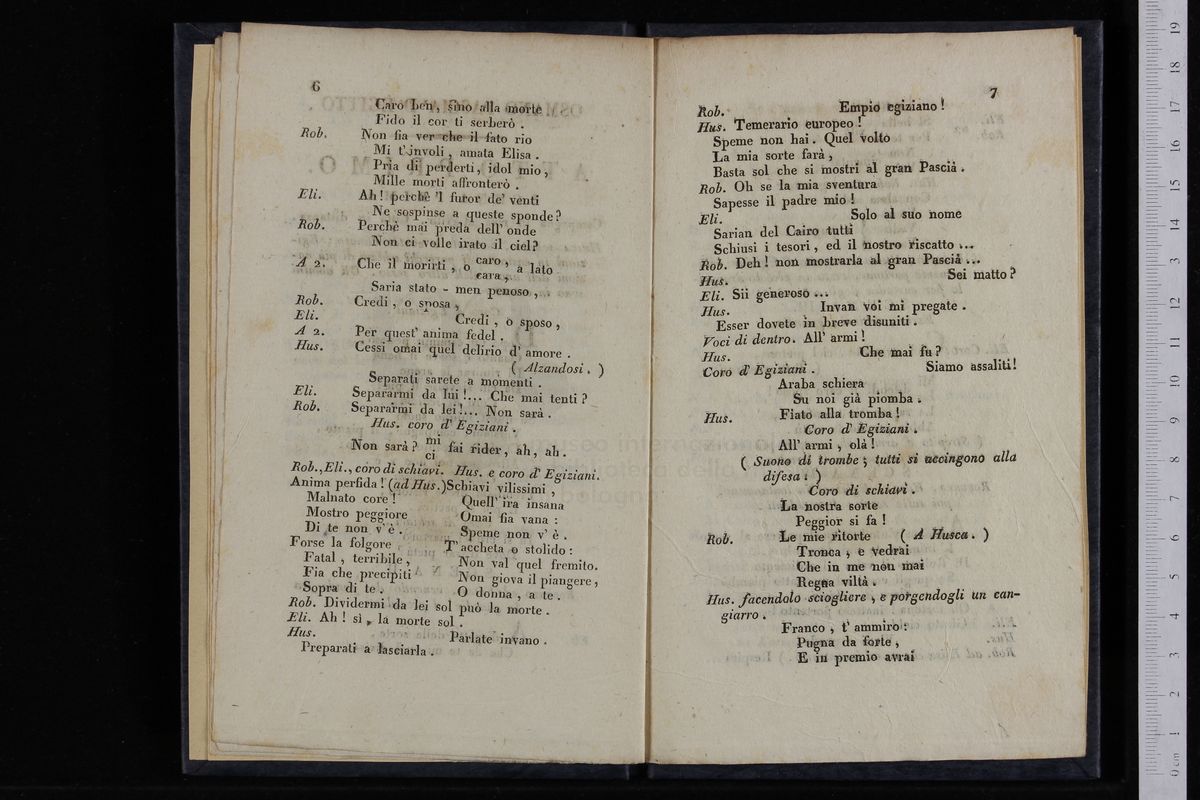 6
Caro ben, sino alla morte
Fido il cor ti serberò.
Rob. Non fia ver che il fato rio
Mi t'involi, amata Elisa.
Pria di perderti, idol mio,
Mille morti affronterò.
Eli. Ah! perchè 'l furor de' venti
Ne sospinse a queste sponde?
Rob. Perchè mai preda dell' onde
Non ci volle irato il ciel?
A 2. Che il morirti, o caro, a lato
cara,
Saria stato - men penoso,
Rob. Credi, o sposa,
Eli. Credi, o sposo,
A 2. Per quest' anima fedel.
Hus. Cessi omai quel delirio d' amore.
( Alzandosi. )
Separati sarete a momenti.
Eli. Separarmi da lui!... Che mai tenti?
Rob. Separarmi da lei!... Non sarà.
Hus. coro d' Egiziani.
Non sarà? mi fai rider, ah, ah.
ci
Rob., Eli., coro di schiavi. Hus. e coro d' Egiziani.
Anima perfida! (ad Hus.) Schiavi vilissimi,
Malnato core! Quell' ira insana
Mostro peggiore Omai fia vana:
Di te non v' è. Speme non v' è.
Forse la folgore T' accheta o stolido:
Fatal, terribile, Non val quel fremito.
Fia che precipiti Non giova il piangere,
Sopra di te. O donna, a te.
Rob. Dividermi da lei sol può la morte.
Eli. Ah! sì, la morte sol.
Hus. Parlate invano.
Preparati a lasciarla.
7
Rob. Empio egiziano!
Hus. Temerario europeo!
Speme non hai. Quel volto
La mia sorte farà,
Basta sol che si mostri al gran Pascià.
Rob. Oh se la mia sventura
Sapesse il padre mio!
Eli. Solo al suo nome
Sarian del Cairo tutti
Schiusi i tesori, ed il nostro riscatto ...
Rob. Deh! non mostrarla al gran Pascià ...
Hus. Sei matto?
Eli. Sii generoso ...
Hus. Invan voi mi pregate.
Esser dovete in breve disuniti.
Voci di dentro. All' armi!
Hus. Che mai fu?
Coro d' Egiziani. Siamo assaliti!
Araba schiera
Su noi già piomba.
Hus. Fiato alla tromba!
Coro d' Egiziani.
All' armi, olà!
( Suono di trombe; tutti si accingono alla
difesa. )
Coro di schiavi.
La nostra sorte
Peggior si fa!
Rob. Le mie ritorte ( A Husca. )
Tronca, e vedrai
Che in me non mai
Regna viltà.
Hus. facendolo sciogliere, e porgendogli un can-
giarro.
Franco, t' ammiro:
Pugna da forte,
E in premio avrai